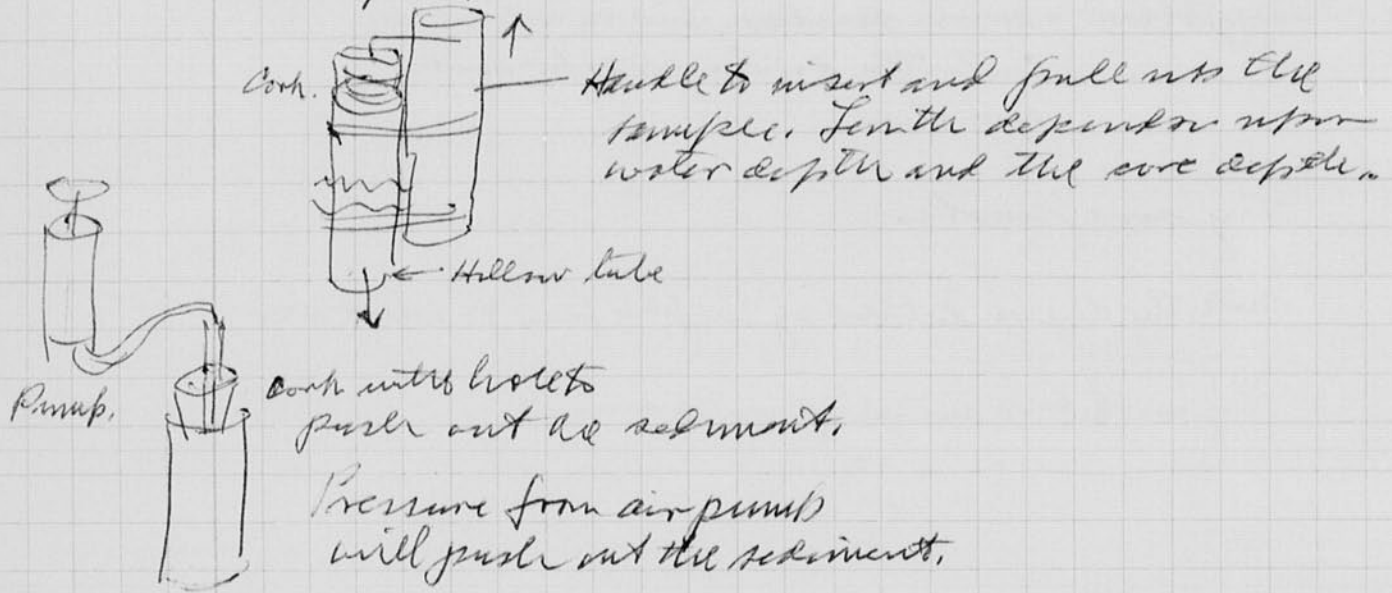 Cork.
Handle to insert and pull up the
sample. Lenth depends upon
water depth and the core depth.
Hollow tube
Pump.
cork with hole to
push out the sediment.
Pressure from air pump
will push out the sediment.